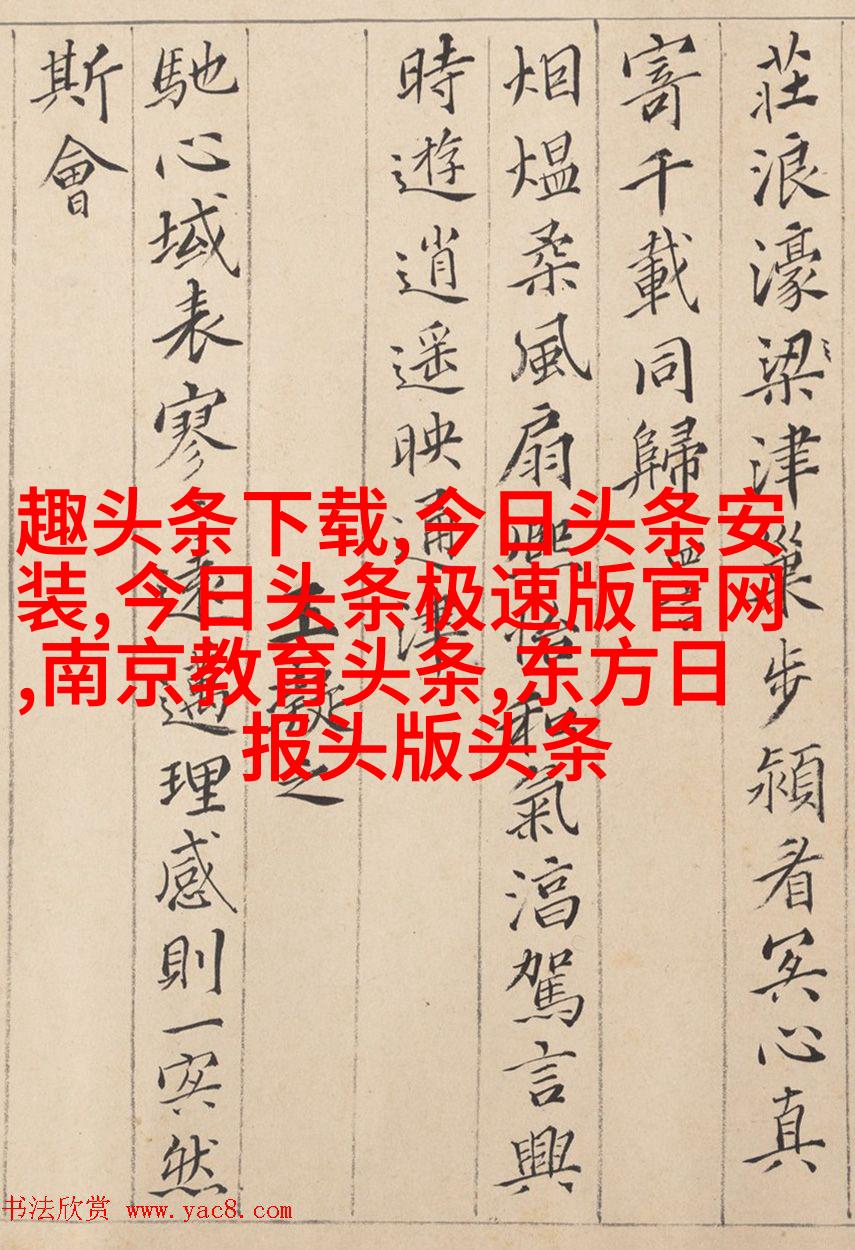 莊浪濠梁津巢步潁眉冥心真
寄千載同歸
烟熅柔風扇熙怡和氣淳駕言興
時遊逍遥映通津
王凝之
馳心域表寥遠邁理感則一冥然
斯會
趣头条下载,今日头条安
装,今日头条极速版官网
,南京教育头条,东方日
报头版头条
书法欣赏 www.yac8.com